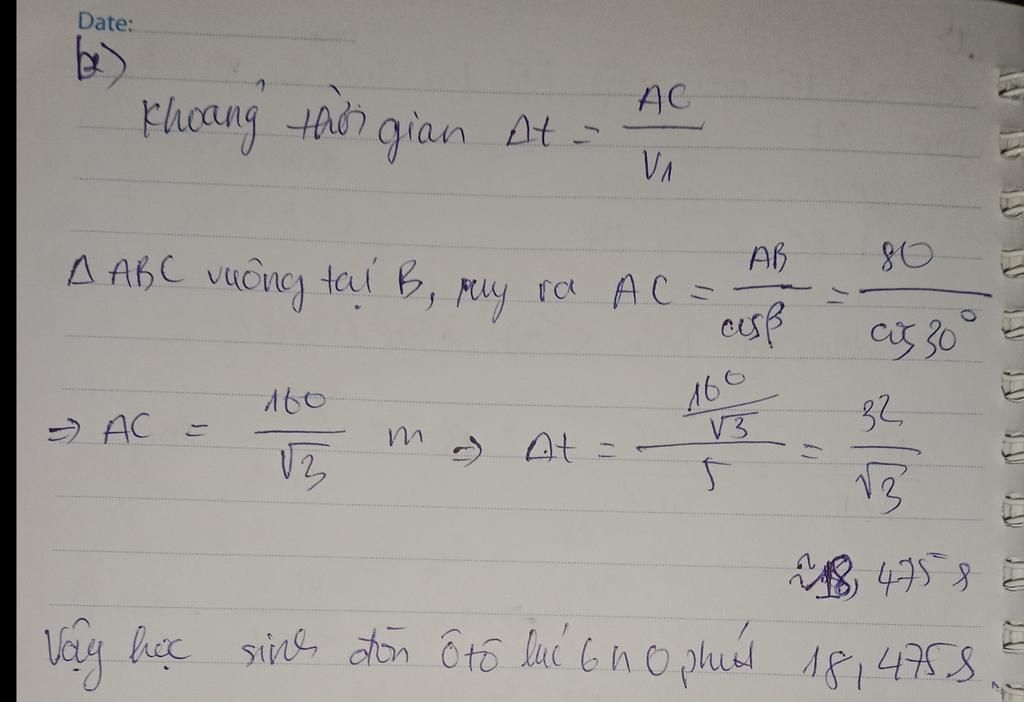 Date:
b)
Khoảng thời gian Δt = AC / V1
Δ ABC vuông tại B, suy ra AC = AB / cosβ = 80 / cos 30°
=> AC = 160 / √3 m => Δt = (160 / √3) / 5 = 32 / √3
≈ 18,475 s
Vậy học sinh đón ô tô lúc 6h 0 phút 18,475s.